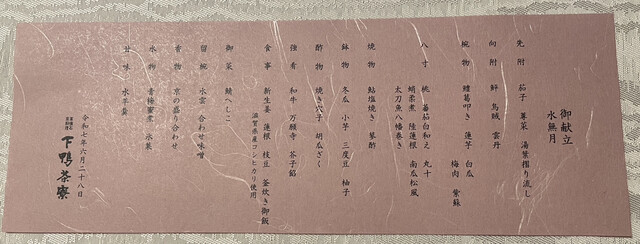 御献立
水無月
先附 茄子 蓴菜 湯葉摺り流し
向附 鮃 烏賊 雲丹
椀物 鱧葛叩き 蓮芋 白瓜
梅肉 紫蘇
八寸 桃 蕃茄白和え 丸十
蛸柔煮 陸蓮根 南瓜松風
太刀魚八幡巻き
焼物 鮎塩焼き 蓼酢
鉢物 冬瓜 小芋 三度豆 柚子
酢物 焼き穴子 胡瓜ざく
強肴 和牛 万願寺 芥子餡
食事 新生姜 蓮根 枝豆 釜炊き御飯
滋賀県産コシヒカリ使用
御菜 鯖へしこ
留椀 水雲 合わせ味噌
香物 京の盛り合わせ
水物 青梅蜜煮 氷菓
甘味 水羊羹
令和七年六月二十八日
下鴨茶寮